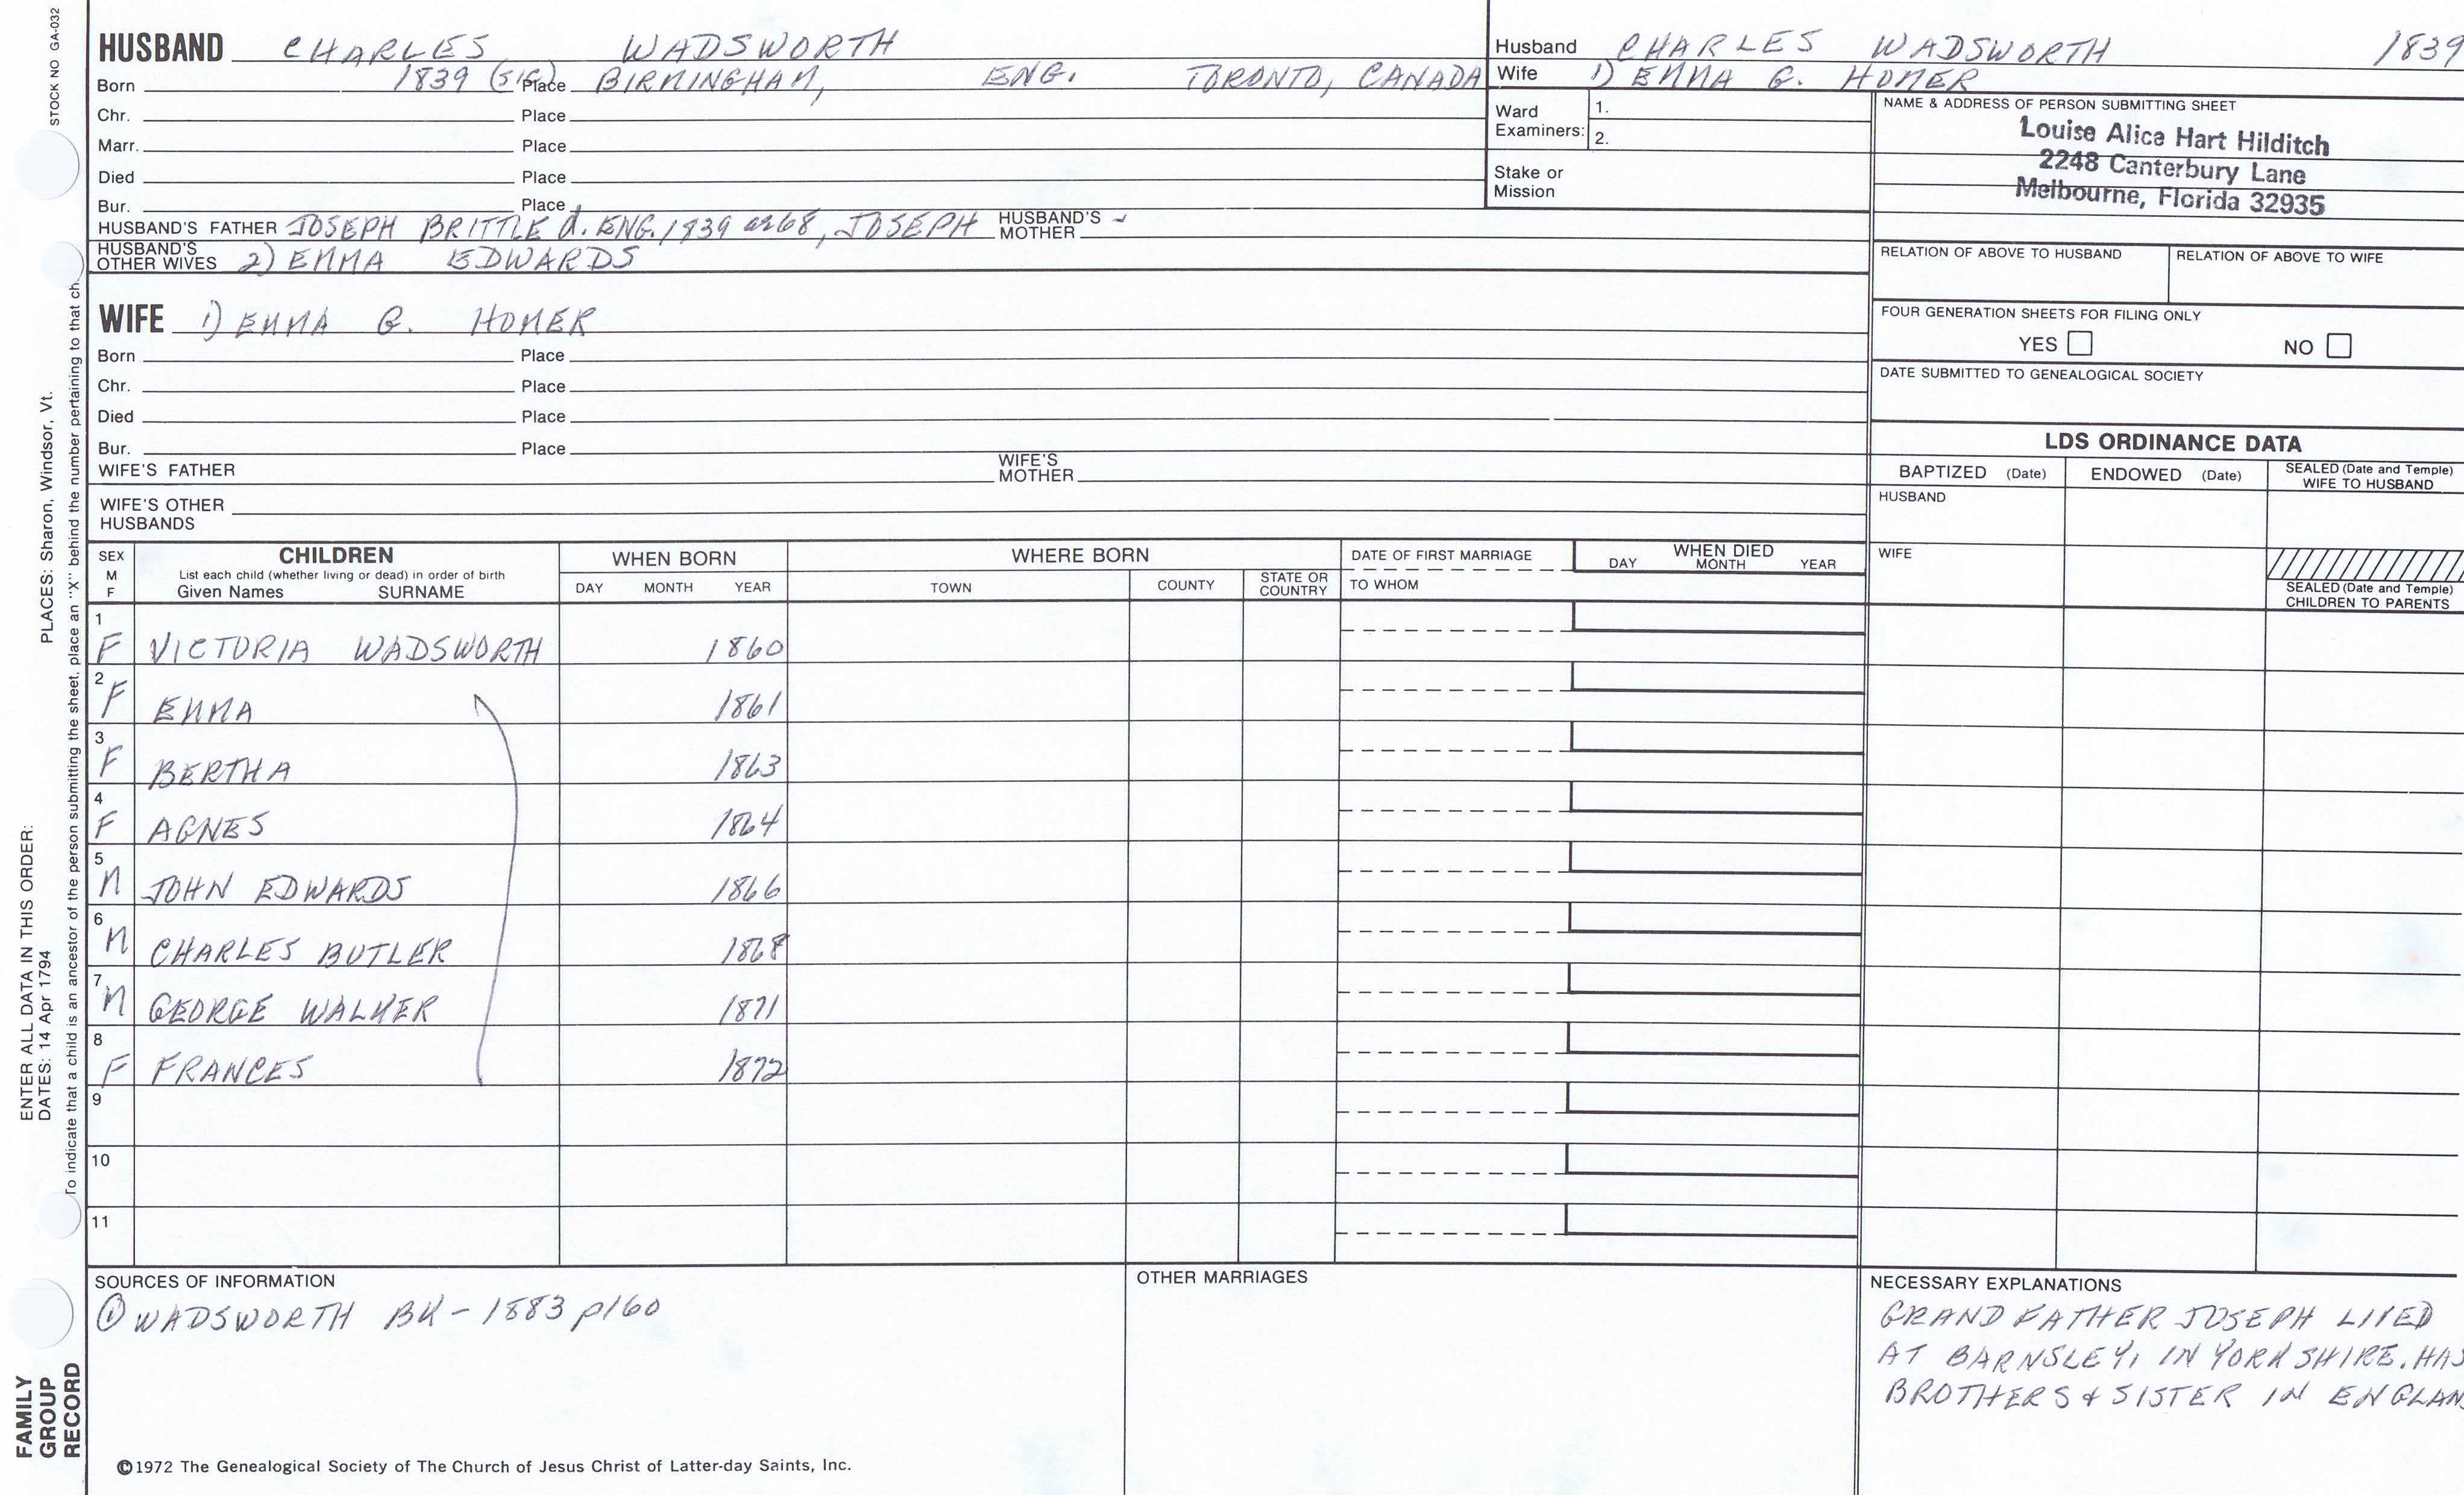 STOCK NO GA-032
HUSBAND CHARLES WADSWORTH
Born 1839 (SIG) Place BIRMINGHAM, ENG. TORONTO, CANADA
Chr. Place
Marr. Place
Died Place
Bur. Place
HUSBAND'S FATHER JOSEPH BRITTLE d. ENG. 1839 ae 68, JOSEPH HUSBAND'S MOTHER -
HUSBAND'S OTHER WIVES 2) EMMA EDWARDS
WIFE 1) EMMA G. HOMER
Born Place
Chr. Place
Died Place
Bur. Place
WIFE'S FATHER WIFE'S MOTHER
WIFE'S OTHER HUSBANDS
Husband CHARLES WADSWORTH 1839
Wife 1) EMMA G. HOMER
Ward Examiners: 1.
2.
Stake or Mission
NAME & ADDRESS OF PERSON SUBMITTING SHEET
Louise Alice Hart Hilditch
2248 Canterbury Lane
Melbourne, Florida 32935
RELATION OF ABOVE TO HUSBAND RELATION OF ABOVE TO WIFE
FOUR GENERATION SHEETS FOR FILING ONLY
YES NO
DATE SUBMITTED TO GENEALOGICAL SOCIETY
LDS ORDINANCE DATA
BAPTIZED (Date) ENDOWED (Date) SEALED (Date and Temple) WIFE TO HUSBAND
HUSBAND
WIFE
SEALED (Date and Temple) CHILDREN TO PARENTS
SEX M F CHILDREN WHEN BORN WHERE BORN DATE OF FIRST MARRIAGE WHEN DIED
List each child (whether living or dead) in order of birth
Given Names SURNAME DAY MONTH YEAR TOWN COUNTY STATE OR COUNTRY TO WHOM DAY MONTH YEAR
1 F VICTORIA WADSWORTH 1860
2 F EMMA 1861
3 F BERTHA 1863
4 F AGNES 1864
5 M JOHN EDWARDS 1866
6 M CHARLES BUTLER 1868
7 M GEORGE WALKER 1871
8 F FRANCES 1872
9
10
11
SOURCES OF INFORMATION
① WADSWORTH BK - 1883 p160
OTHER MARRIAGES
NECESSARY EXPLANATIONS
GRANDFATHER JOSEPH LIVED
AT BARNSLEY, IN YORKSHIRE. HAS
BROTHERS & SISTER IN ENGLAND
©1972 The Genealogical Society of The Church of Jesus Christ of Latter-day Saints, Inc.
PLACES: Sharon, Windsor, Vt.
ENTER ALL DATA IN THIS ORDER:
DATES: 14 Apr 1794
To indicate that a child is an ancestor of the person submitting the sheet, place an "X" behind the number pertaining to that ch
FAMILY
GROUP
RECORD